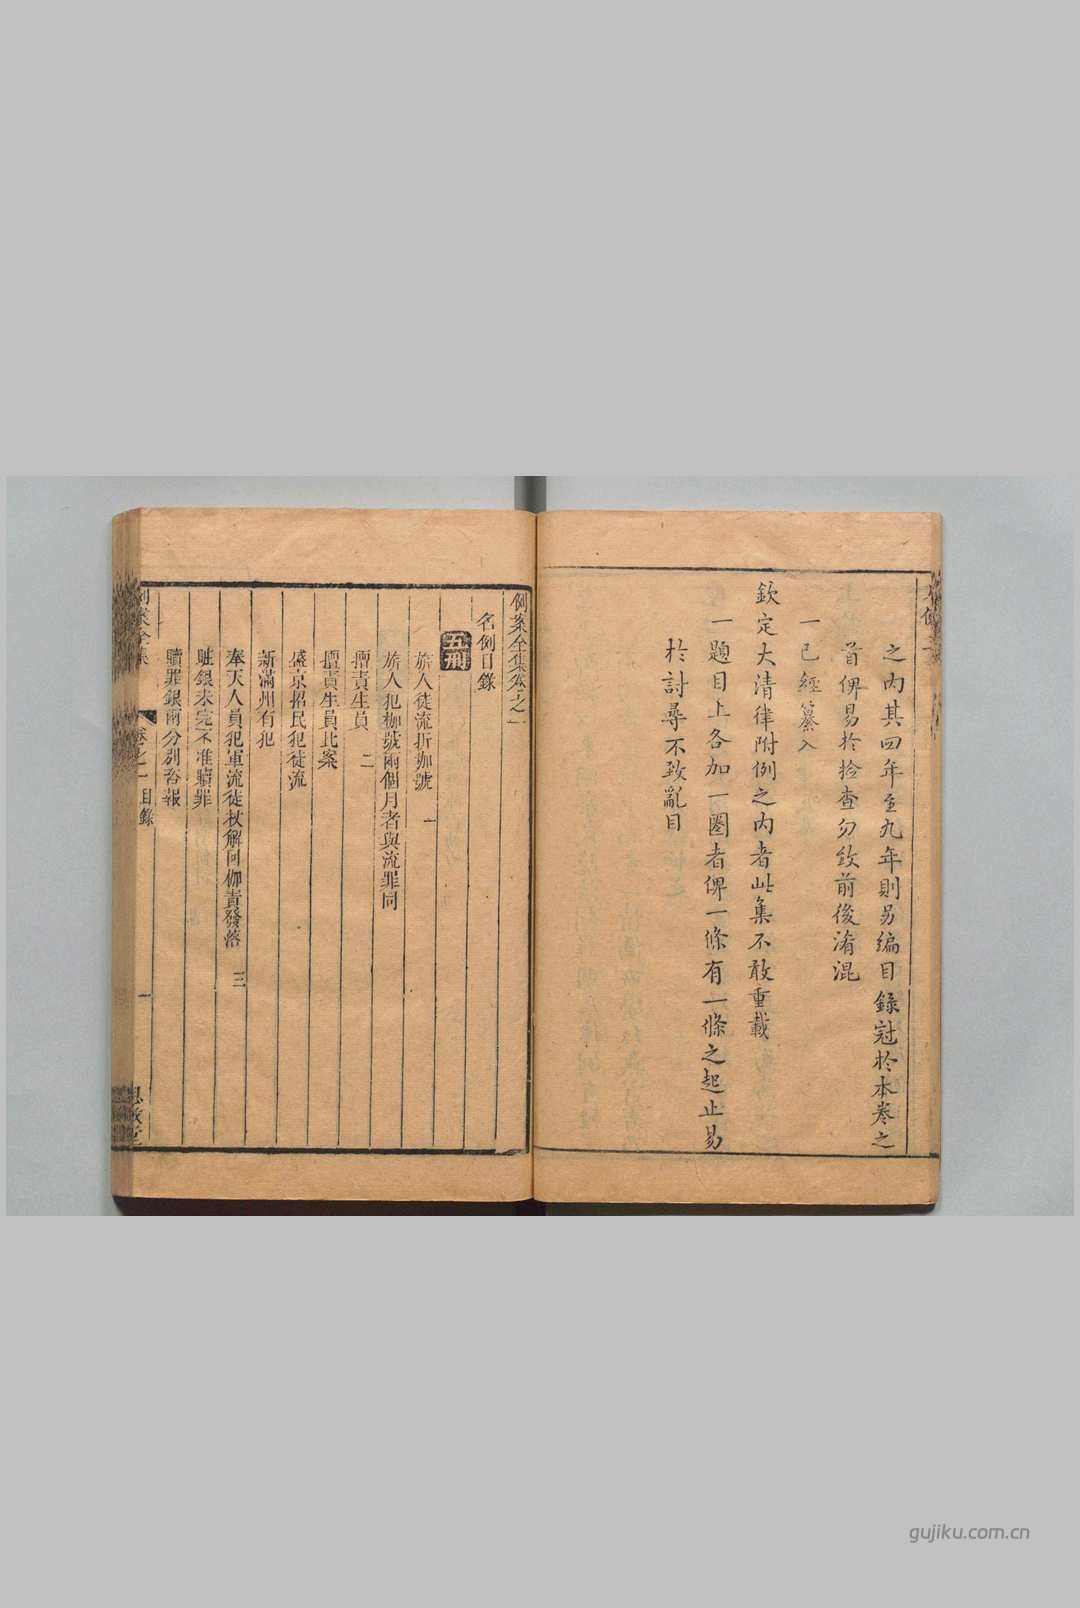 之内其四年至九年則另編目錄冠於本卷之
首俾易於撿查勿致前後淆混
一已經纂入
欽定大清律附例之内者此集不敢重載
一題目上各加一圈者俾一條有一條之起止易
於討尋不致亂目
例案全集卷之一
名例目錄
五刑
旂人徒流折枷號 一
旂人犯枷號兩個月者與流罪同
擅責生員 二
擅責生員比案
盛京招民犯徒流
新滿州有犯
奉天人員犯軍流徒杖解回枷責發落 三
贓銀未完不准贖罪
贖罪銀兩分别咨報
例案全集 卷之一 目錄 一 思敬堂
gujiku.com.cn